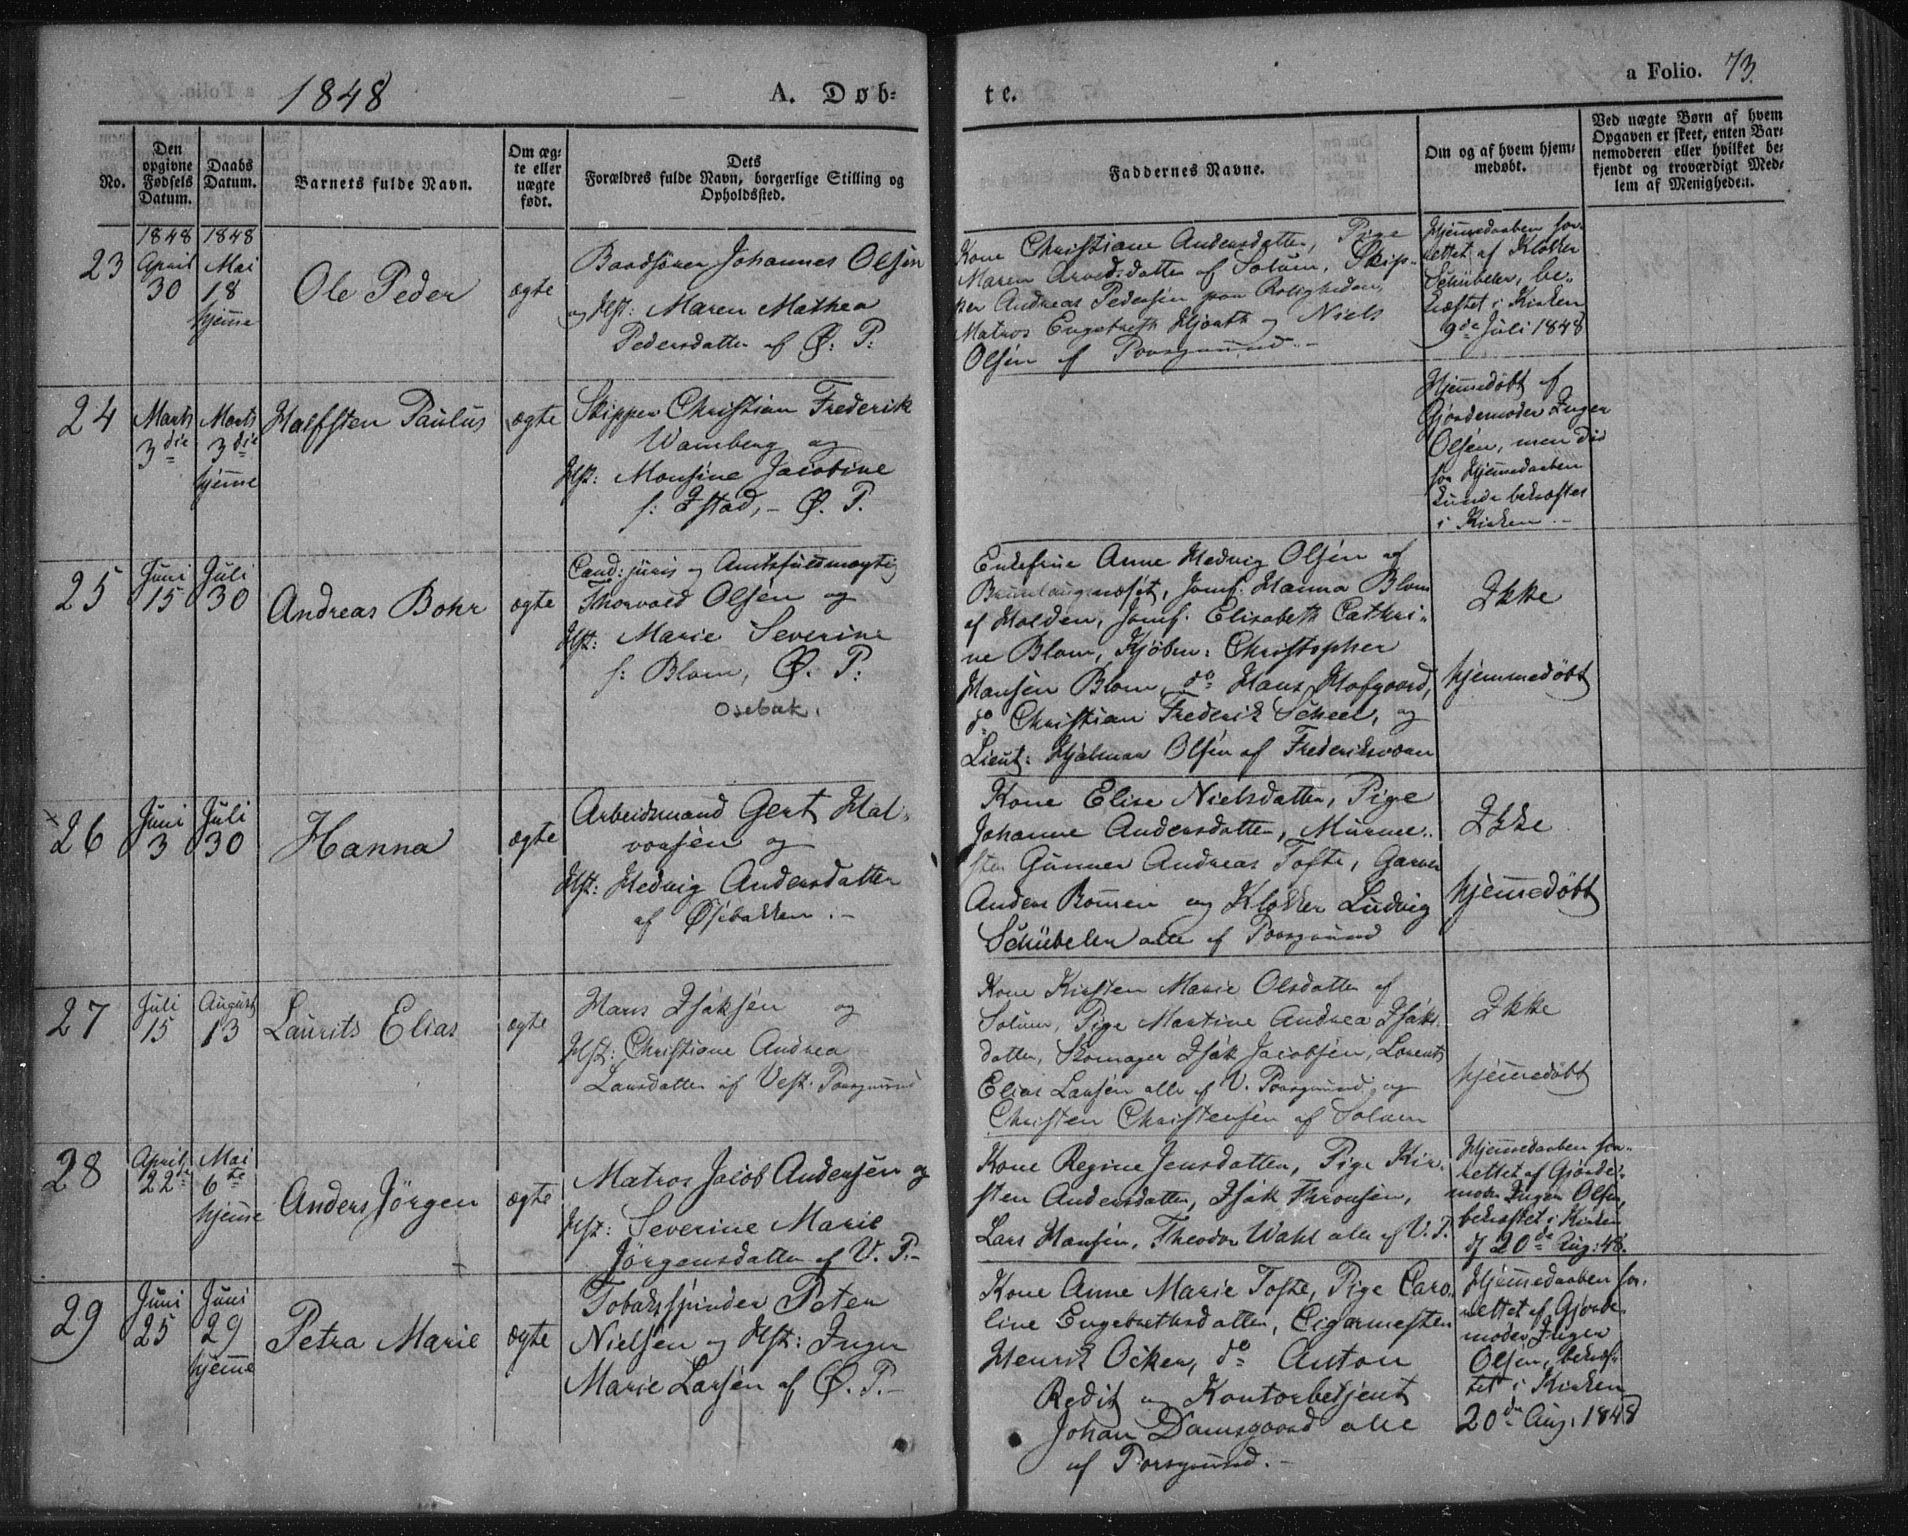 1848
A. Døb-
te.
a Folio. 73.
No.
Den
opgivne
Fødsels
Datum.
Daabs
Datum.
Barnets fulde Navn.
Om æg-
te eller
uægte
født.
Dets
Forældres fulde Navn, borgerlige Stilling og
Opholdssted.
Faddernes Navne.
Om og af hvem hjem-
medøbt.
Ved uægte Børn af hvem
Opgaven er skeet, enten Bar-
nemoderen eller hvilket be-
kjendt og troværdigt Med-
lem af Menigheden.
23
1848
April
30
1848
Mai
18
hjemme
Ole Peder
ægte
Johannes Olsen
og Hst: Maren Mathea
Pedersdatter af Ø: P:
Kone Christiane Andersdatter, Pige
Maren Arvedsdatter af Solum, Skip-
per Andreas Pedersen paa Roligheden,
Matros Engebreth Hjorth og Niels
Olsen af Porsgrund.-
Hjemmedaaben for-
rettet af Klokker
Schübeler, be-
kræftet i Kirken
9de Juli 1848
24
Marts
3die
Marts
3die
hjemme
Halfsten Paulus
ægte
Skipper Christian Frederik
Wamberg og
Hst: Monsine Jacobine
f: Istad, - Ø. P.
Hjemmedøbt af
Gjordemoder Inger
Olsen, men død
før Hjemmedaaben
kunde bekræftes
i Kirken.-
25
Juni
15
Juli
30
Andreas Bohr
ægte
Cand: juris og Amtsfuldmægtig
Thorvald Olsen og
Hst: Marie Severine
f: Blom, Ø. P:
Osebak.
Enkefrue Anne Hedvig Olsen af
Jomf. Hanna Blom
af Holden, Jomf. Elisabeth Cathri-
ne Blom, Kjøbm: Christopher
Hansen Blom, do Hans Hofgaard,
do Christian Frederik Scheel, og
Lieut: Hjalmar Olsen af Frederiksværn
Ikke
hjemmedøbt
26
Juni
3
Juli
30
Hanna
ægte
Arbeidsmand Gert Hal-
vorsen og
Hst: Hedvig Andersdatter
af Osebakken.-
Kone Elise Nielsdatter, Pige
Johanne Andersdatter, Murme-
ster Gunner Andreas Tofte, Garver
Anders Romen og Klokker Ludvig
Schübeler alle af Porsgrund
Ikke
hjemmedøbt
27
Juli
15
August
13
Laurits Elias
ægte
Hans Isaksen og
Hst: Christiane Andrea
Larsdatter af Vest. Porsgrund
Kone Kirsten Marie Olsdatter af
Solum, Pige Martine Andrea Isaks-
datter, Skomager Isak Jacobsen, Lorents
Elias Larsen alle af V. Porsgrund, og
Christen Christensen af Solum
Ikke
hjemmedøbt
28
April
22de
Mai
6te
hjemme
Anders Jörgen
ægte
Matros Jacob Andersen og
Hst: Severine Marie
Jörgensdatter af V. P.-
Kone Regine Jensdatter, Pige Kir-
sten Andersdatter, Isak Thronsen,
Lars Hansen, Theodor Wahl alle af V. P.
Hjemmedaaben for-
rettet af Gjorde-
moder Inger Olsen,
bekræftet i Kirken
d 20de Aug: 48.
29
Juni
25
Juni
29
hjemme
Petra Marie
ægte
Tobaksspinder Peter
Nielsen og Hst: Inger
Marie Larsen af Ø. P.-
Kone Anne Marie Tofte, Pige Caro-
line Engebrethsdatter, Cigarmester
Henrik Ocker, do Anton
Redit og Kontorbetjent
Johan Damsgaard alle
af Porsgrund.-
Hjemmedaaben for-
rettet af Gjorde-
moder Inger
Olsen, bekræf-
tet i Kirken
20de Aug. 1848